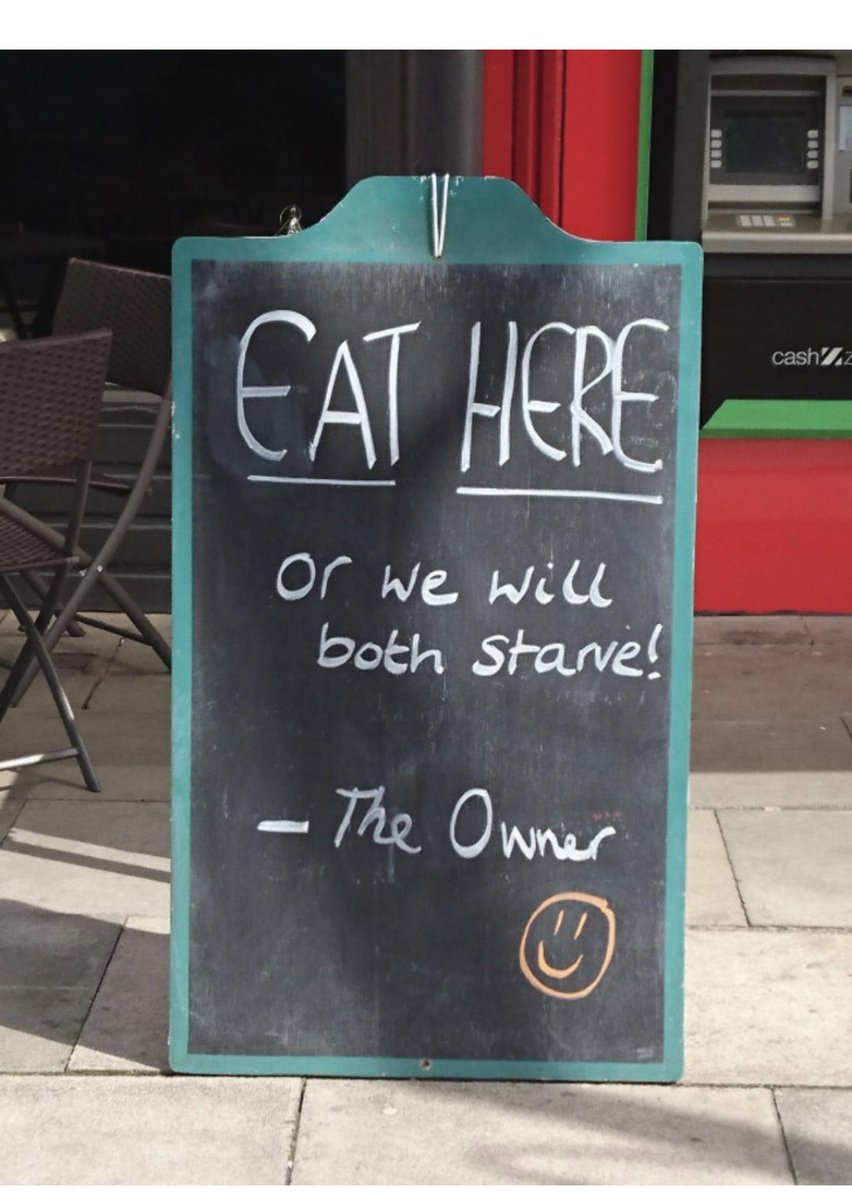 EAT HERE
or we will
both starve!
– The Owner
cash